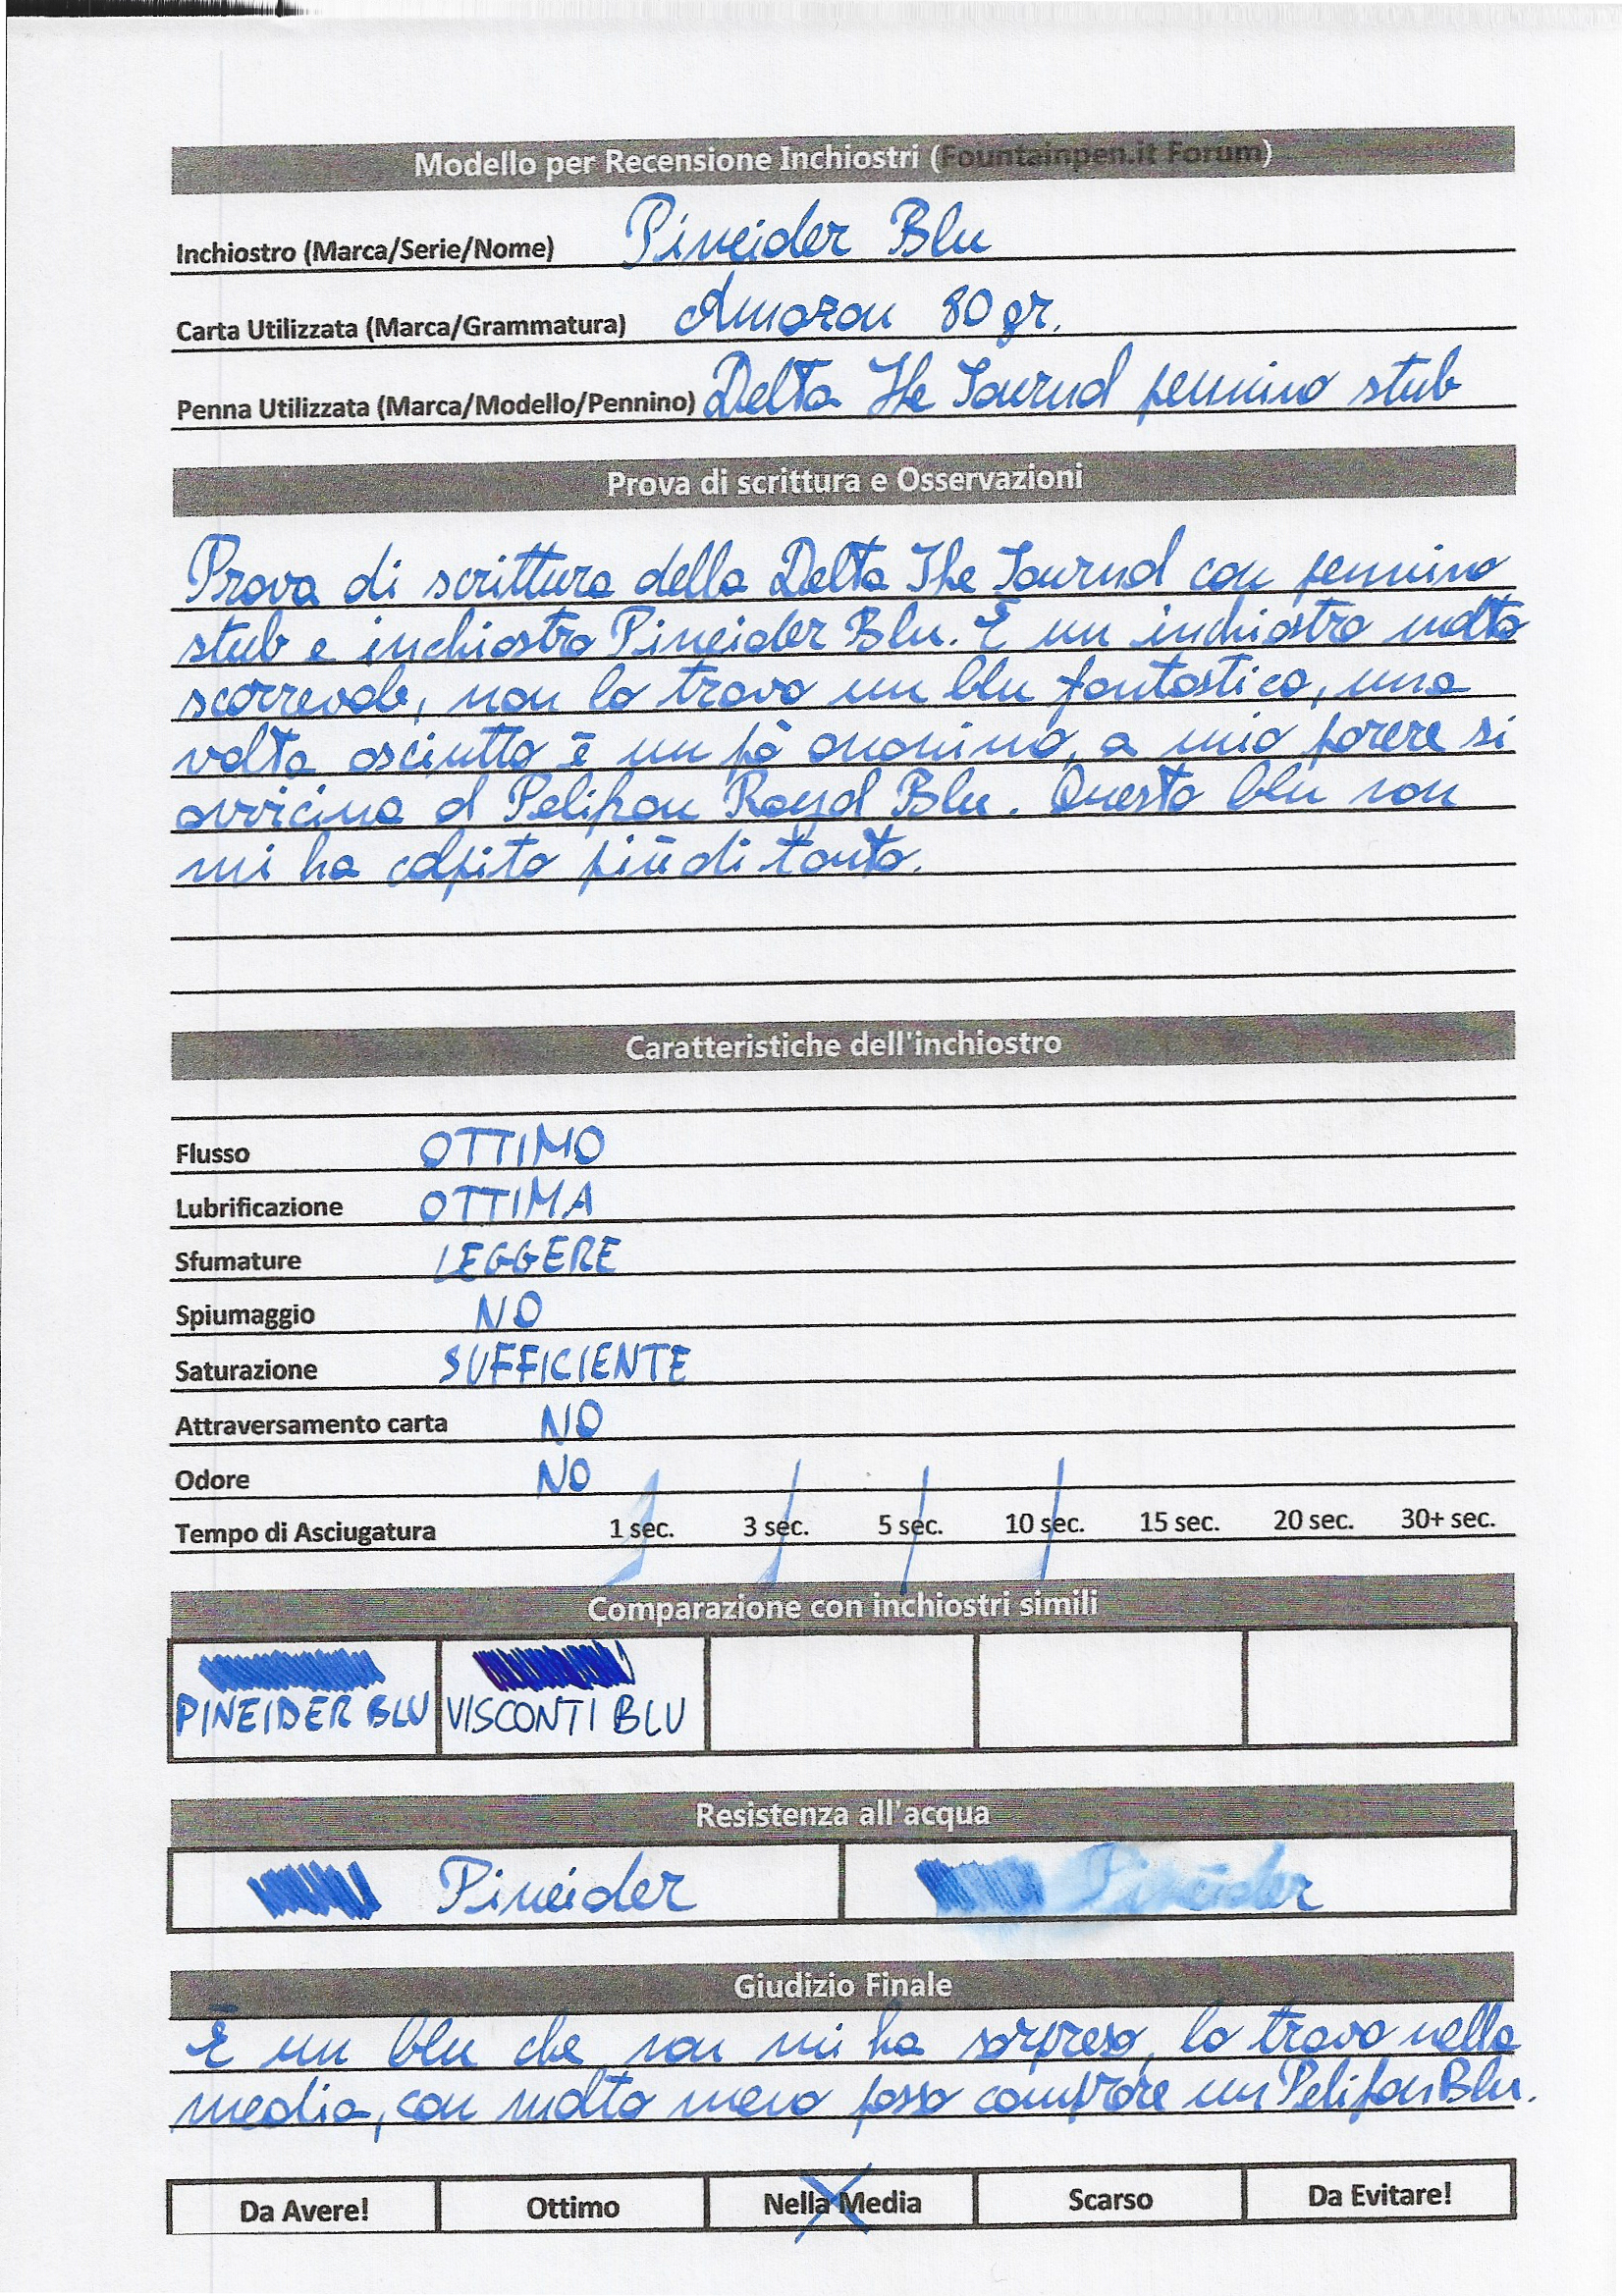 Modello per Recensione Inchiostri (Fountainpen.it Forum)
Inchiostro (Marca/Serie/Nome) Pineider Blu
Carta Utilizzata (Marca/Grammatura) Amazon 80 gr.
Penna Utilizzata (Marca/Modello/Pennino) Delta The Journal pennino stub
Prova di scrittura e Osservazioni
Prova di scrittura della Delta The Journal con pennino
stub e inchiostro Pineider Blu. È un inchiostro molto
scorrevole, non lo trovo un blu fantastico, una
volta asciutto è un pò anonimo, a mio parere si
avvicina al Pelikan Royal Blu. Questo blu non
mi ha colpito più di tanto.
Caratteristiche dell'inchiostro
Flusso OTTIMO
Lubrificazione OTTIMA
Sfumature LEGGERE
Spiumaggio NO
Saturazione SUFFICIENTE
Attraversamento carta NO
Odore NO
Tempo di Asciugatura 1 sec. 3 sec. 5 sec. 10 sec. 15 sec. 20 sec. 30+ sec.
Comparazione con inchiostri simili
PINEIDER BLU VISCONTI BLU
Resistenza all'acqua
Pineider Pineider
Giudizio Finale
È un blu che non mi ha sorpreso, lo trovo nella
media, con molto meno posso comprare un Pelikan Blu.
Da Avere! Ottimo Nella Media Scarso Da Evitare!